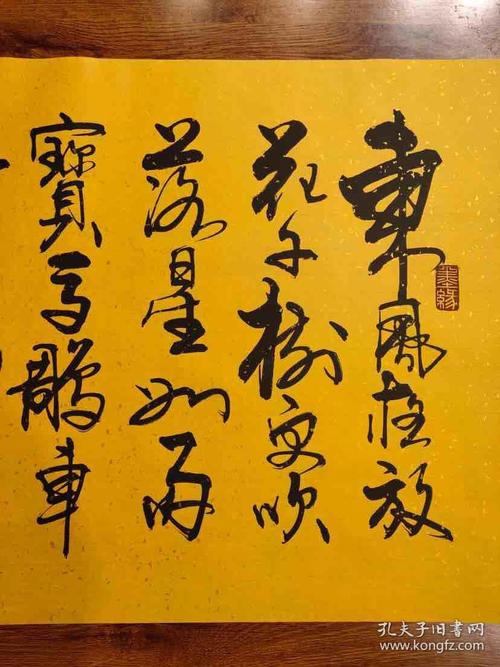 東風夜放
花千樹更吹
落星如雨
寶馬鵰車
孔夫子旧书网
www.kongfz.com